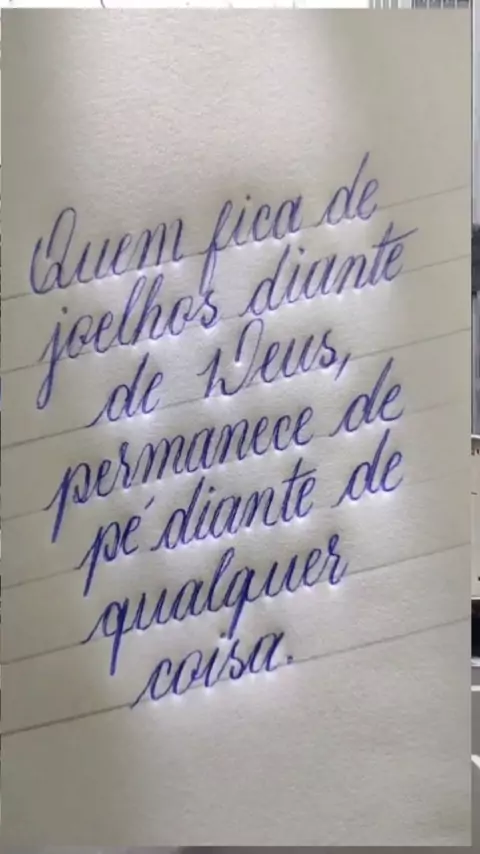 Quem fica de
joelhos diante
de Deus,
permanece de
pé diante de
qualquer
coisa.